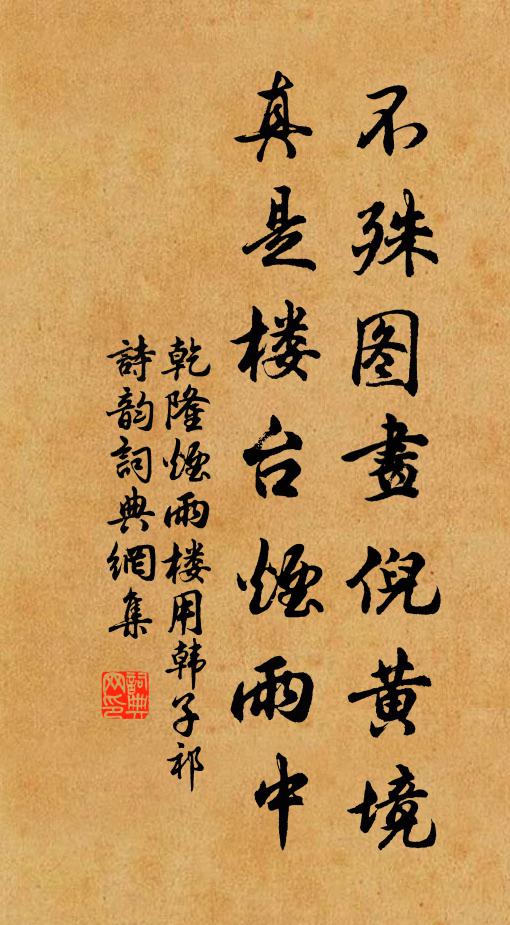 不殊图畫倪黄境
真是楼台煙雨中
乾隆煙雨楼用韩子祁
詩韵詞典網集
詞典网印